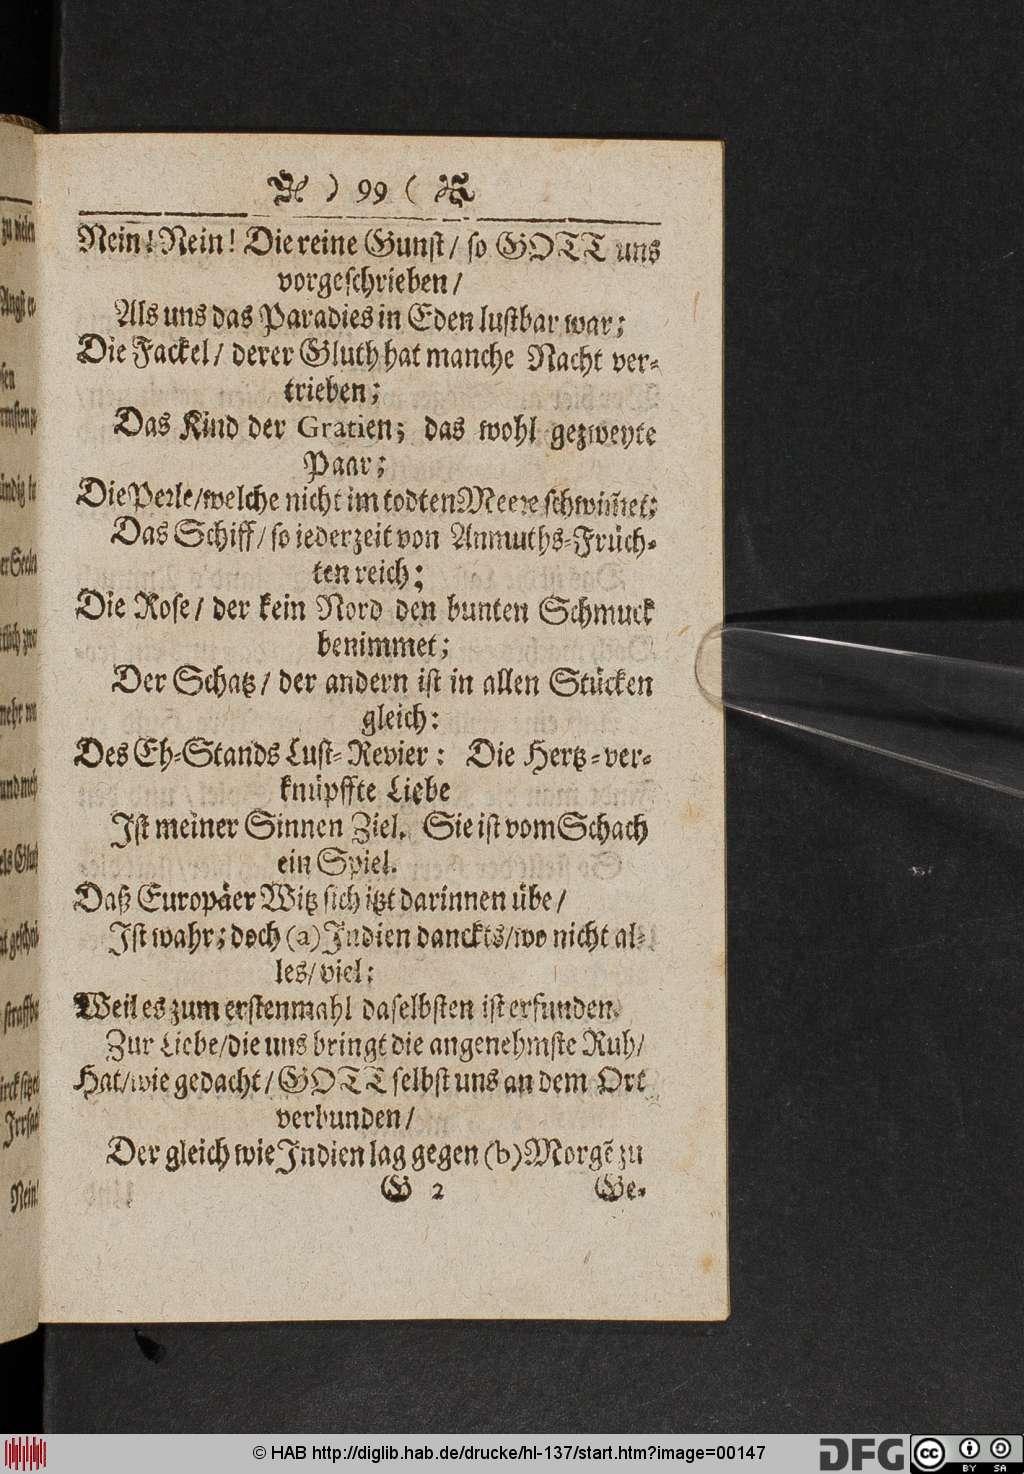 ) 99 (
Nein! Nein! Die reine Gunst/ so GOTT uns
vorgeschrieben/
Als uns das Paradies in Eden lustbar war;
Die Fackel/ derer Gluth hat manche Nacht ver-
trieben;
Das Kind der Gratien; das wohl gezweyte
Paar;
Die Perle/welche nicht im todten Meere schwim̃et;
Das Schiff/ so iederzeit von Anmuths-Früch-
ten reich;
Die Rose/ der kein Nord den bunten Schmuck
benimmet;
Der Schatz/ der andern ist in allen Stücken
gleich:
Des Eh-Stands Lust-Revier: Die Hertz-ver-
knüpffte Liebe
Ist meiner Sinnen Ziel. Sie ist vom Schach
ein Spiel.
Daß Europäer Witz sich itzt darinnen übe/
Ist wahr; doch (a) Indien danckts/wo nicht al-
les/ viel:
Weil es zum erstenmahl daselbsten ist erfunden.
Zur Liebe/die uns bringt die angenehmste Ruh/
Hat/wie gedacht/ GOTT selbst uns an dem Ort
verbunden/
Der gleich wie Indien lag gegen (b) Morgẽ zu
G 2 Ge-
zu vielen
sen
ündig
mehr
und
straffba
Nein!
© HAB http://diglib.hab.de/drucke/hl-137/start.htm?image=00147
DFG
cc
BY SA